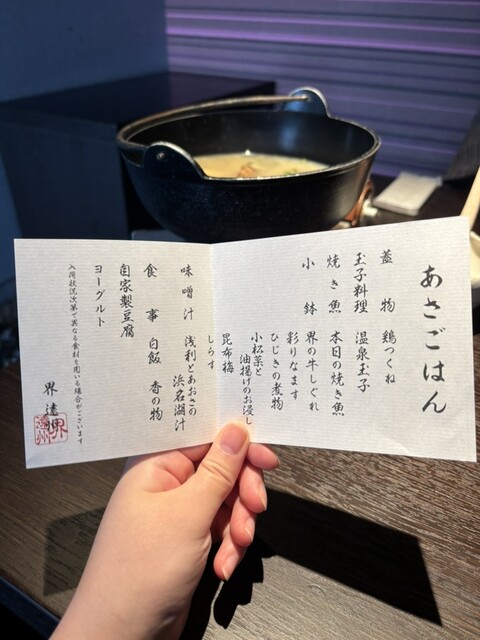 あさごはん
蓋物 鶏つくね
玉子料理 温泉玉子
焼き魚 本日の焼き魚
小鉢 界の牛しぐれ
彩りなます
ひじきの煮物
小松菜と
油揚げのお浸し
昆布梅
しらす
味噌汁 浅利とあおさの
浜名湖汁
食事 白飯 香の物
自家製豆腐
ヨーグルト
入荷状況次第で異なる食材を用いる場合がございます
界 遠州
界
遠州